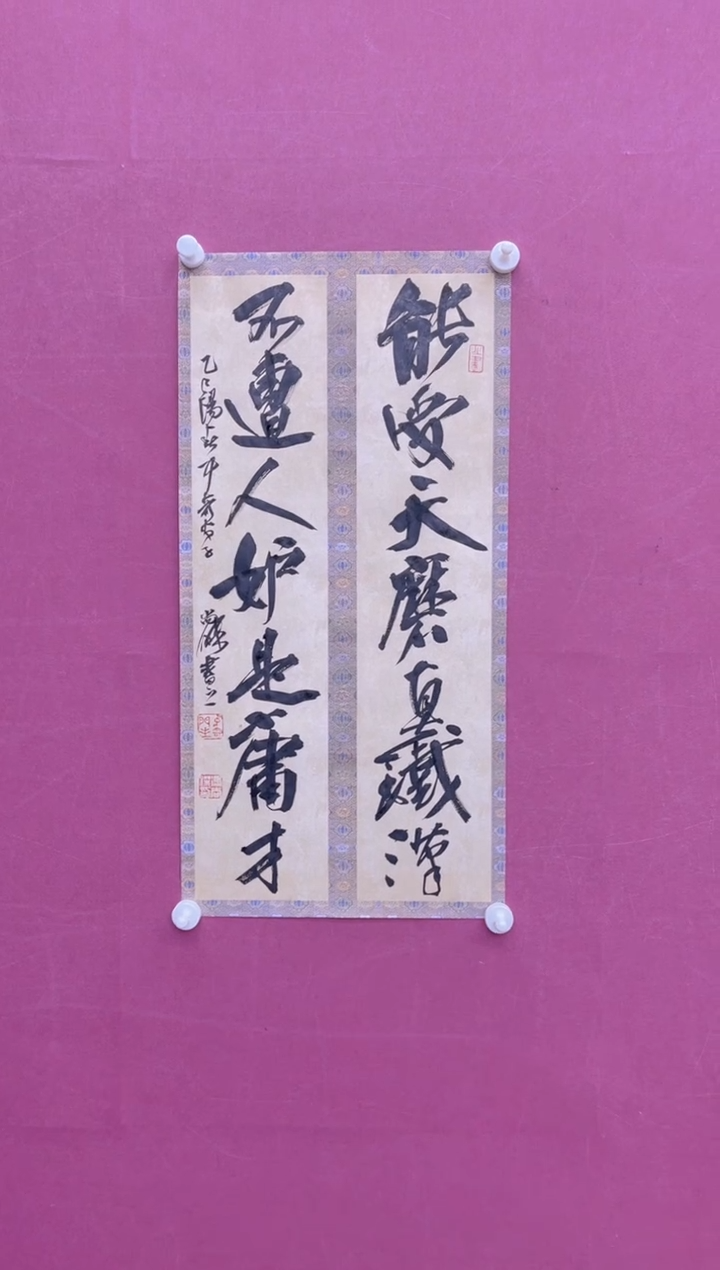 能受天磨真鐵漢
不遭人妒是庸才
乙巳陽春
書